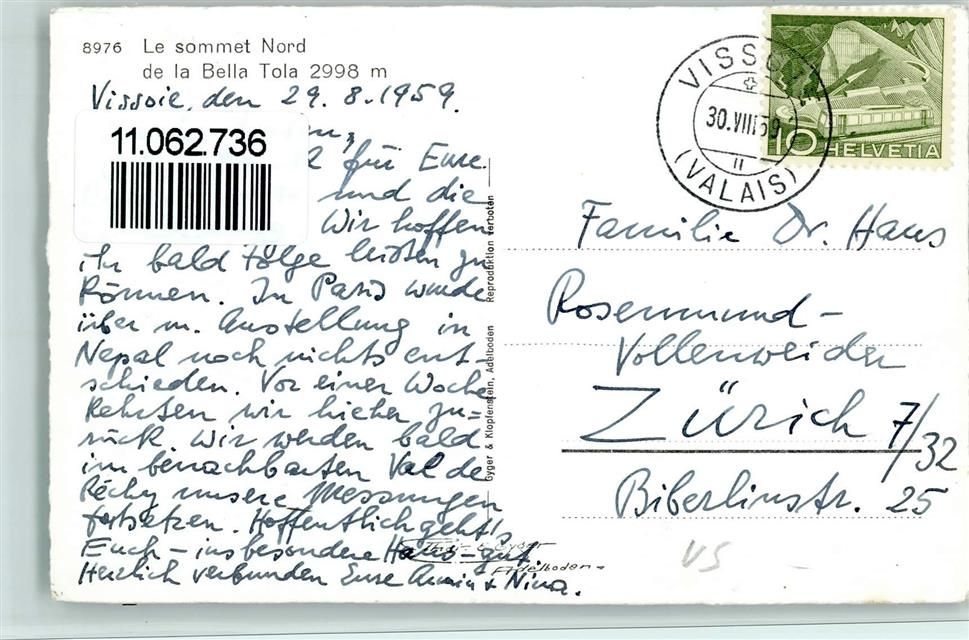 8976 Le sommet Nord
de la Bella Tola 2998 m
Vissoie, den 29.8.1959.
11.062.736
für Eure
und die
Wir hoffen
ihr bald Folge leisten zu
können. In Paris wurde
über m. Anstellung in
Nepal noch nichts ent-
schieden. Vor einer Woche
kehrten wir hieher zu-
rück. Wir werden bald
im benachbarten Val de
Réchy unsere Messungen
fortsetzen. Hoffentlich geht's
Euch – insbesondere Hans – gut.
Herzlich verbunden Eure & Nina.
Gyger & Klopfenstein, Adelboden
Reproduktion verboten
Gyger
Adelboden
VISSOIE
30.VIII.59
11
(VALAIS)
10 HELVETIA
Familie Dr. Hans
Rosenmund-
Vollenweider
Zürich 7/32
Biberlinstr. 25
VS